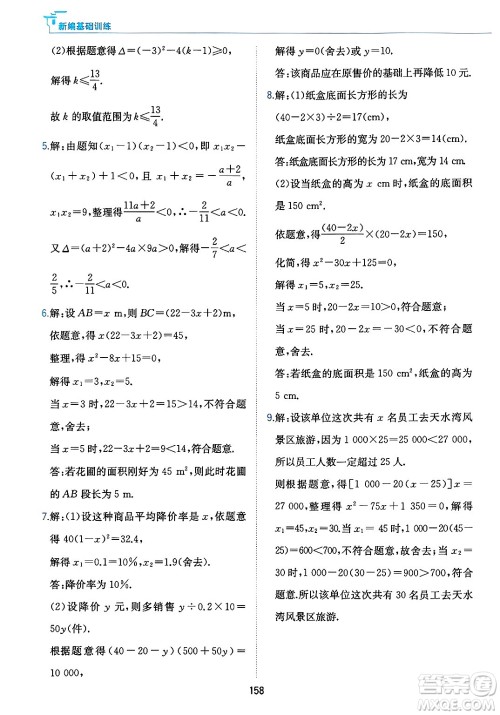 新编基础训练
(2)根据题意得 Δ=(-3)²-4(k-1)≥0,
解得 k≤13/4.
故 k 的取值范围为 k≤13/4.
5.解:由题知(x₁-1)(x₂-1)<0,即 x₁x₂-
(x₁+x₂)+1<0,又 x₁+x₂=-(a+2)/a,
x₁x₂=9,整理得(11a+2)/a<0,∴-2/11<a<0.
又 Δ=(a+2)²-4a×9a>0,解得-2/7<a<
2/5,∴-2/11<a<0.
6.解:设 AB=x m,则 BC=(22-3x+2)m,
依题意,得 x(22-3x+2)=45,
整理,得 x²-8x+15=0,
解得 x₁=3,x₂=5.
当 x=3 时,22-3x+2=15>14,不符合
题意,舍去;
当 x=5 时,22-3x+2=9,符合题意.
答:若花圃的面积刚好为 45 m²,则此时花圃
的 AB 段长为 5 m.
7.解:(1)设这种商品平均降价率是 x,依题意得
40(1-x)²=32.4,
解得 x₁=0.1=10%,x₂=1.9(舍去).
答:降价率为 10%.
(2)设降价 y 元,则多销售 y÷0.2×10=
50y(件).
根据题意得(40-20-y)(500+50y)=
10 000,
解得 y=0(舍去)或 y=10.
答:该商品应在原售价的基础上再降低 10 元.
8.解:(1)纸盒底面长方形的长为
(40-2×3)÷2=17(cm),
纸盒底面长方形的宽为 20-2×3=14(cm).
答:纸盒底面长方形的长为 17 cm,宽为 14 cm.
(2)设当纸盒的高为 x cm 时,纸盒的底面积
是 150 cm²,
依题意,得(40-2x)/2×(20-2x)=150,
化简,得 x²-30x+125=0,
解得 x₁=5,x₂=25.
当 x=5 时,20-2x=10>0,符合题意;
当 x=25 时,20-2x=-30<0,不符合题
意,舍去.
答:若纸盒的底面积是 150 cm²,纸盒的高为
5 cm.
9.解:设该单位这次共有 x 名员工去天水湾风
景区旅游,
因为 1 000×25=25 000(元)<27 000(元),
所以员工人数一定超过 25 人.
则根据题意,得[1 000-20(x-25)]x=
27 000.
整理,得 x²-75x+1 350=0,
解得 x₁=45,x₂=30.
当 x₁=45 时,1 000-20(x-25)=1 000-20(45-
25)=600<700,不符合题意,故舍去 x₁;
当 x₂=30 时,1 000-20(x-25)=1 000-20(30-
25)=900>700,符合题意.
答:该单位这次共有 30 名员工去天水
湾风景区旅游.
158